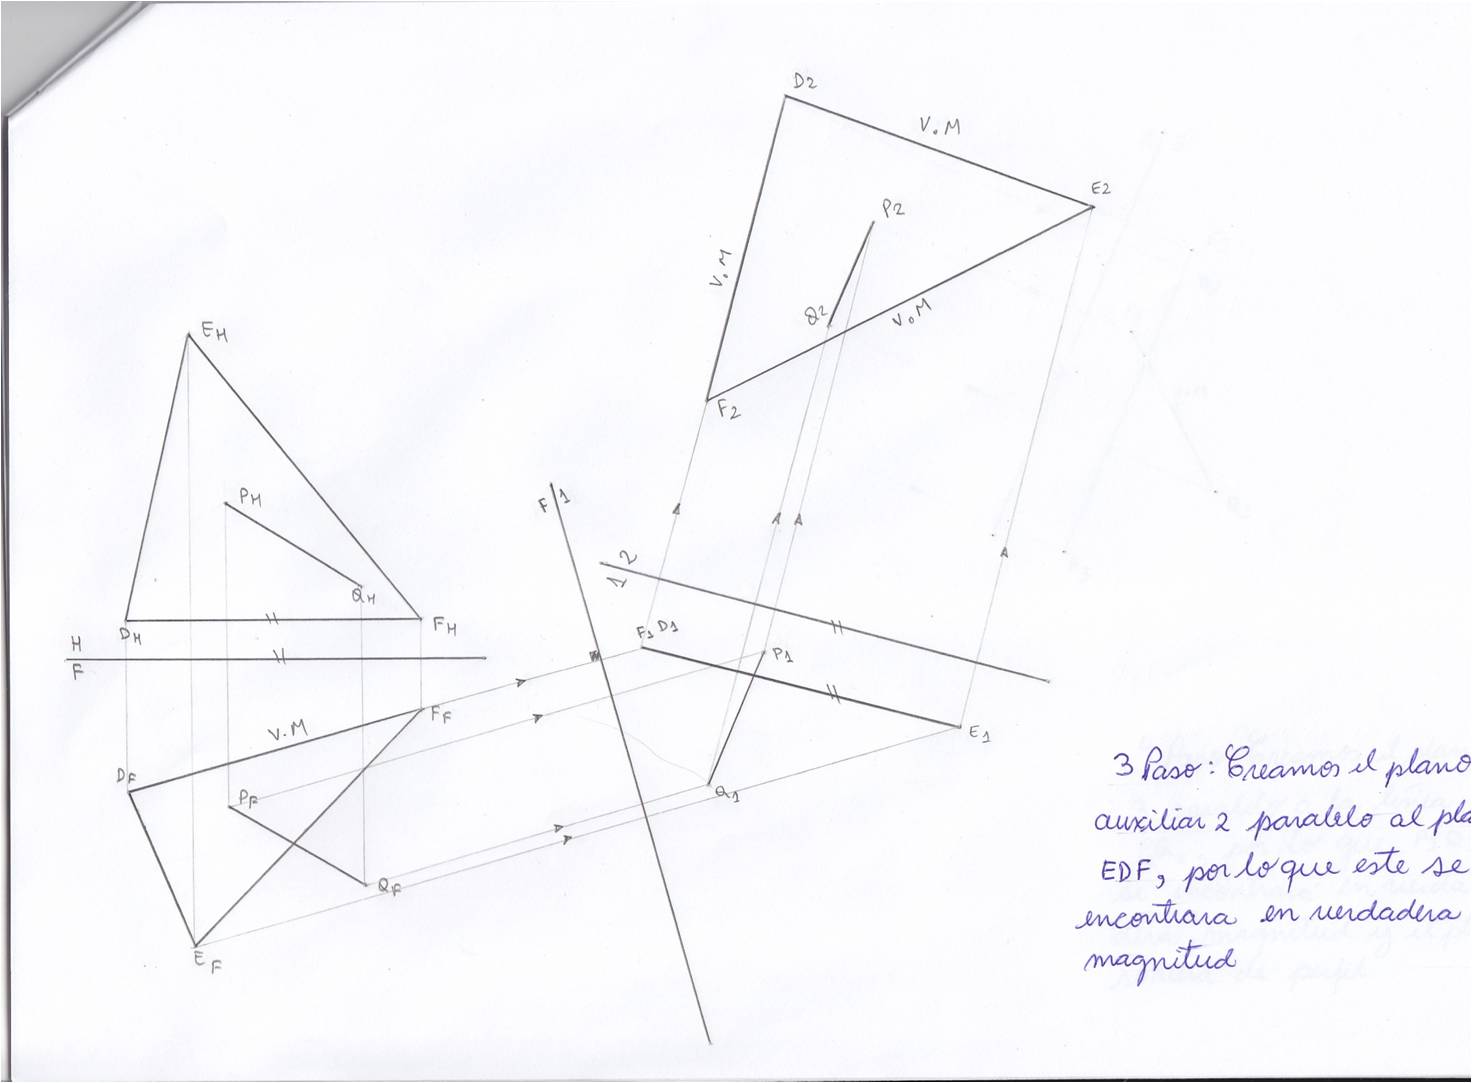 D2
V.M
E2
P2
V.M
Q2
V.M
F2
EH
F 1
PH
1 2
QH
DH
FH
H
F
F1 D1
P1
V.M
FF
E1
DF
PF
Q1
QF
EF
3 Paso: Creamos el plano
auxiliar 2 paralelo al pla
EDF, por lo que este se
encontrara en verdadera
magnitud